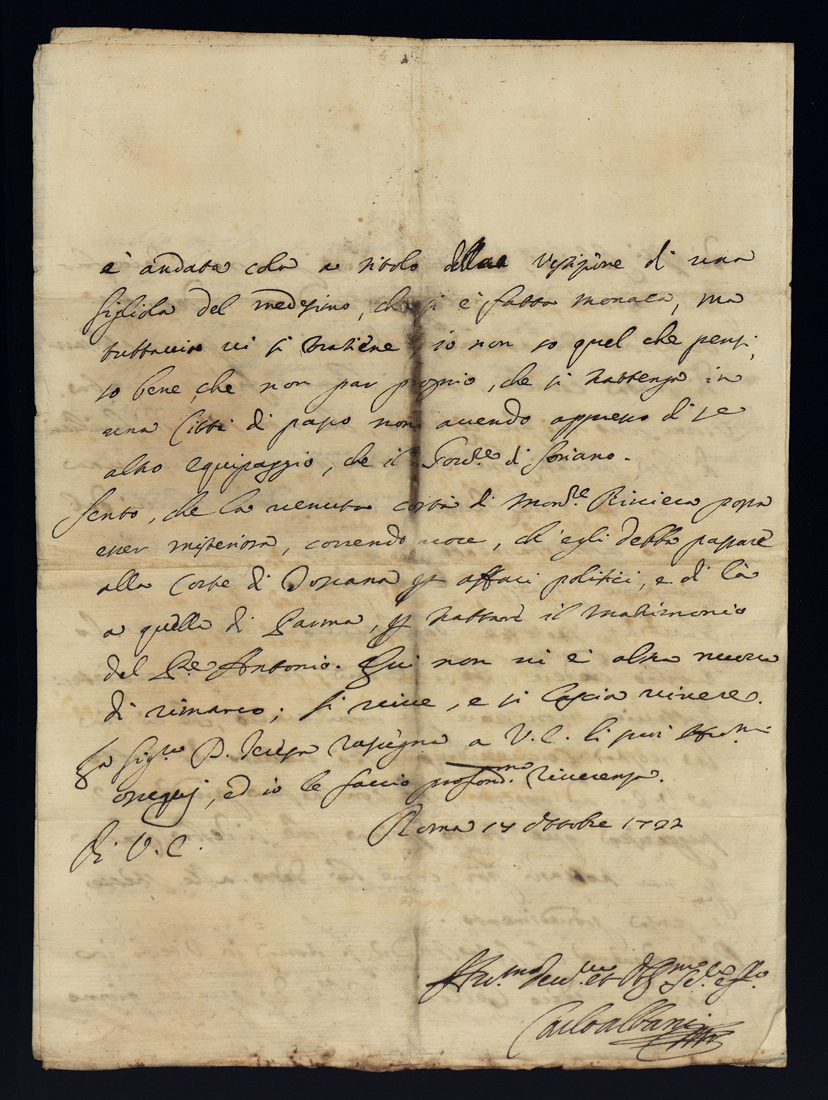 è andata colà a titolo della vestizione di una
figliola del medesimo, che si è fatta monaca, ma
tuttavia vi si trattiene, io non so quel che pensi,
so bene, che non par proprio, che si trattenga in
una Città di passo non avendo appresso di se
altro equipaggio, che il di Soriano.
Sento, che la venuta costà di Monsre Riviera possa
esser misteriosa, correndo voce, ch'egli debba passare
alla Corte di Toscana p affari politici, e di là
a quella di Parma, p trattare il matrimonio
del Pe Antonio. Qui non vi è altra nuova
di rimarco; si vive, e si lascia vivere.
La Sigra D. Teresa rassegna a V. E. li suoi
ossequj, ed io le faccio profondma riverenza.
Di V. E. Roma 17 Ottobre 1722
Carlo Albani